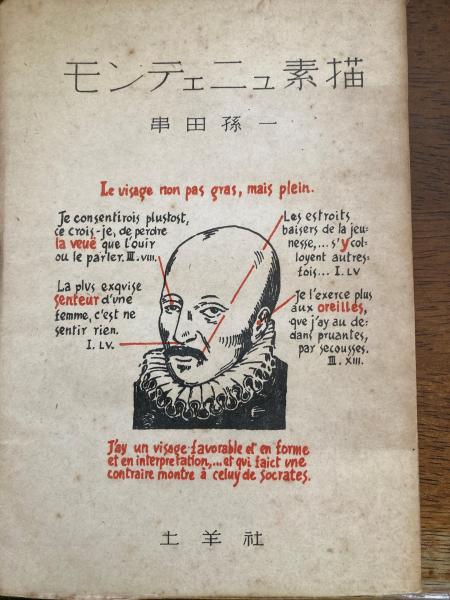 モンテェニュ素描
串田孫一
Le visage non pas gras, mais plein.
Je consentirois plustost,
ce crois-je, de perdre
la veuë que l'ouir
ou le parler. III. VIII.
La plus exqvise
senteur d'une
femme, c'est ne
sentir rien.
I. LV.
Les estroits
baisers de la jeu-
nesse,... s'y col-
loyent autres-
fois... I. LV
Je l'exerce plus
aux oreilles,
que j'ay au de-
dans pruantes,
par secousses.
III. XIII.
J'ay un visage favorable et en forme
et en interpretation,... et qui faict vne
contraire montre à celuy de Socrates.
土羊社